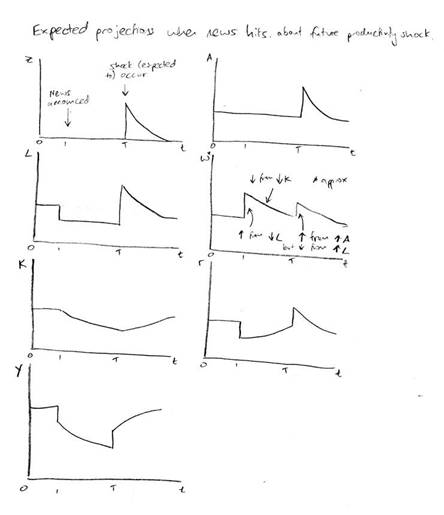 Expected projections when news hits about future productivity shock.
Z
News announced
shock (expected to) occur
0 1 T t
A
T t
L
0 1 T t
W
↓ from ↓K
* approx
↑ from ↓L
↑ from ↑A
but ↓ from ↑L
0 1 T t
K
0 1 T t
r
0 1 T t
Y
0 1 T t